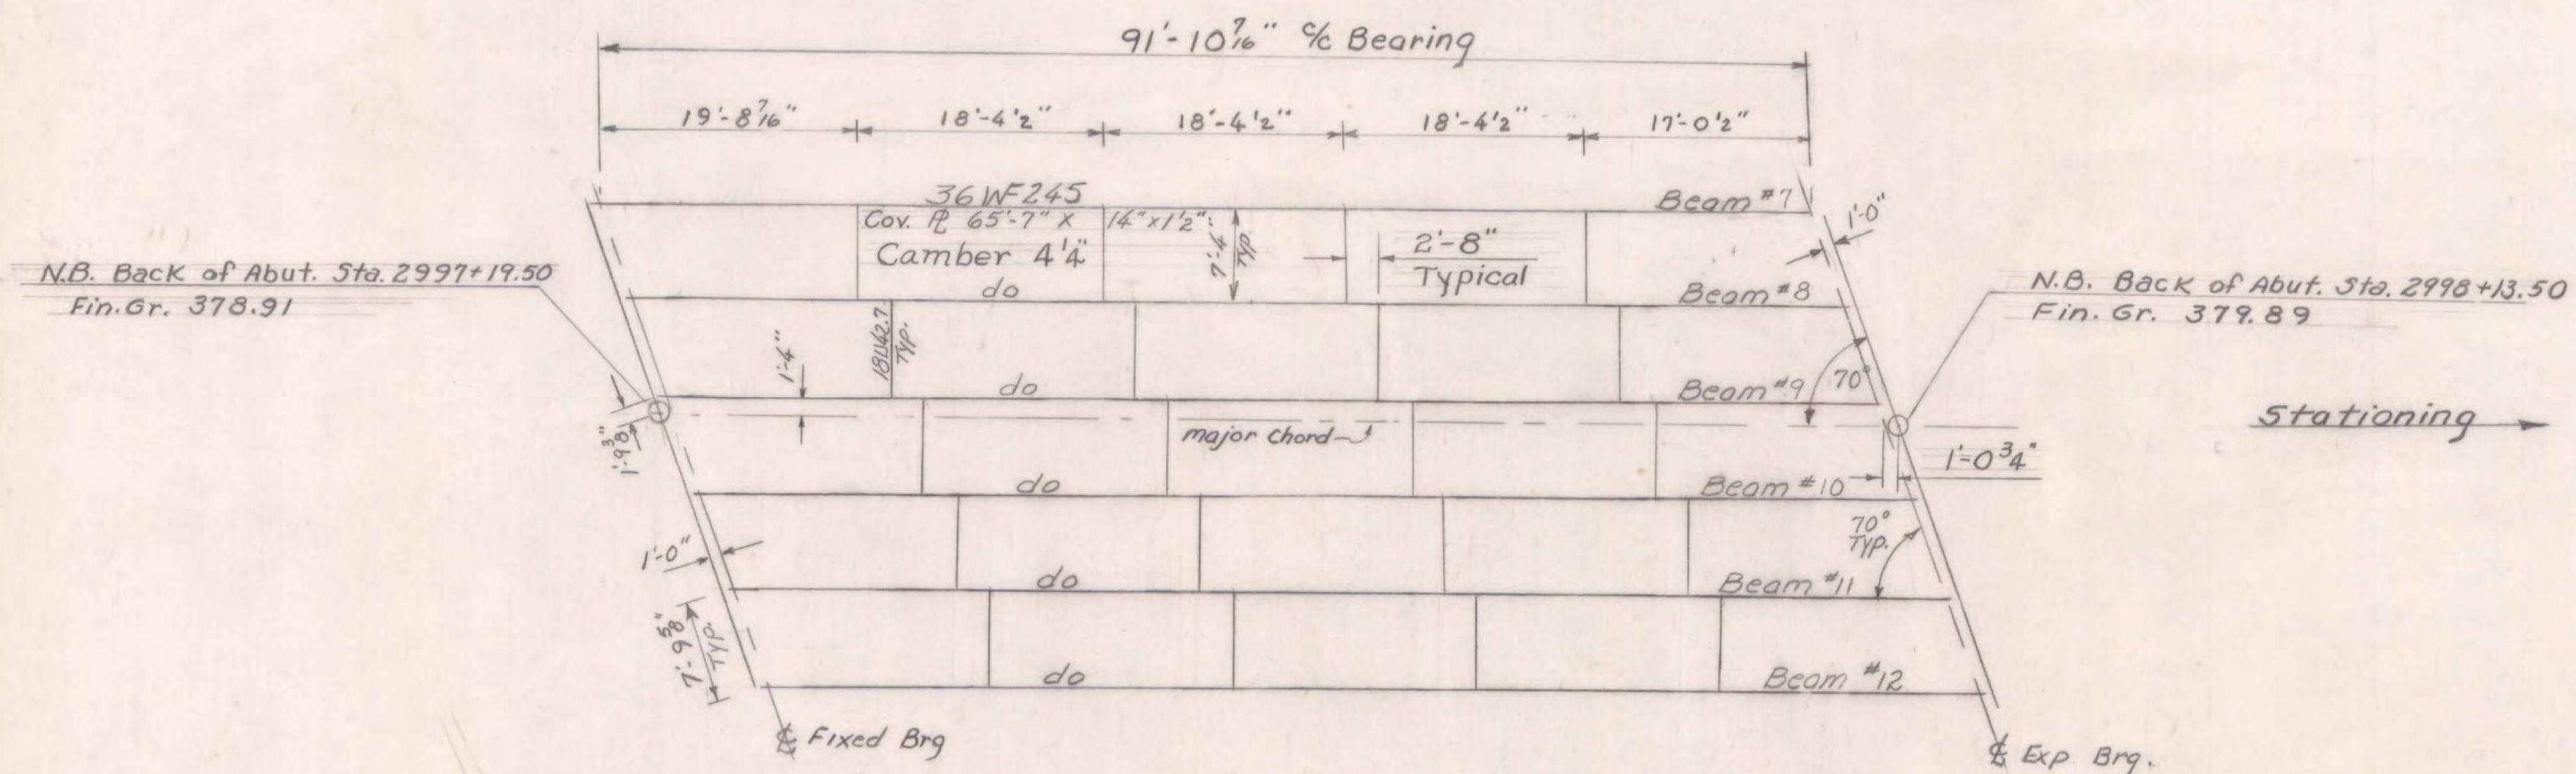 91'-10 7/16" c/c Bearing
19'-8 7/16"
18'-4 1/2"
18'-4 1/2"
18'-4 1/2"
17'-0 1/2"
36 WF 245
Beam #7
Cov. ℙL 65'-7" x 14" x 1 1/2"
Camber 4 1/4"
7'-4"
Typ.
2'-8"
Typical
1'-0"
do
Beam #8
N.B. Back of Abut. Sta. 2997+19.50
Fin. Gr. 378.91
N.B. Back of Abut. Sta. 2998+13.50
Fin. Gr. 379.89
18⊔42.7
Typ.
1'-4"
do
Beam #9
70°
1'-9 3/8"
major chord
Stationing
do
Beam #10
1'-0 3/4"
1'-0"
70°
Typ.
do
Beam #11
7'-9 5/8"
Typ.
do
Beam #12
℄ Fixed Brg
℄ Exp Brg.